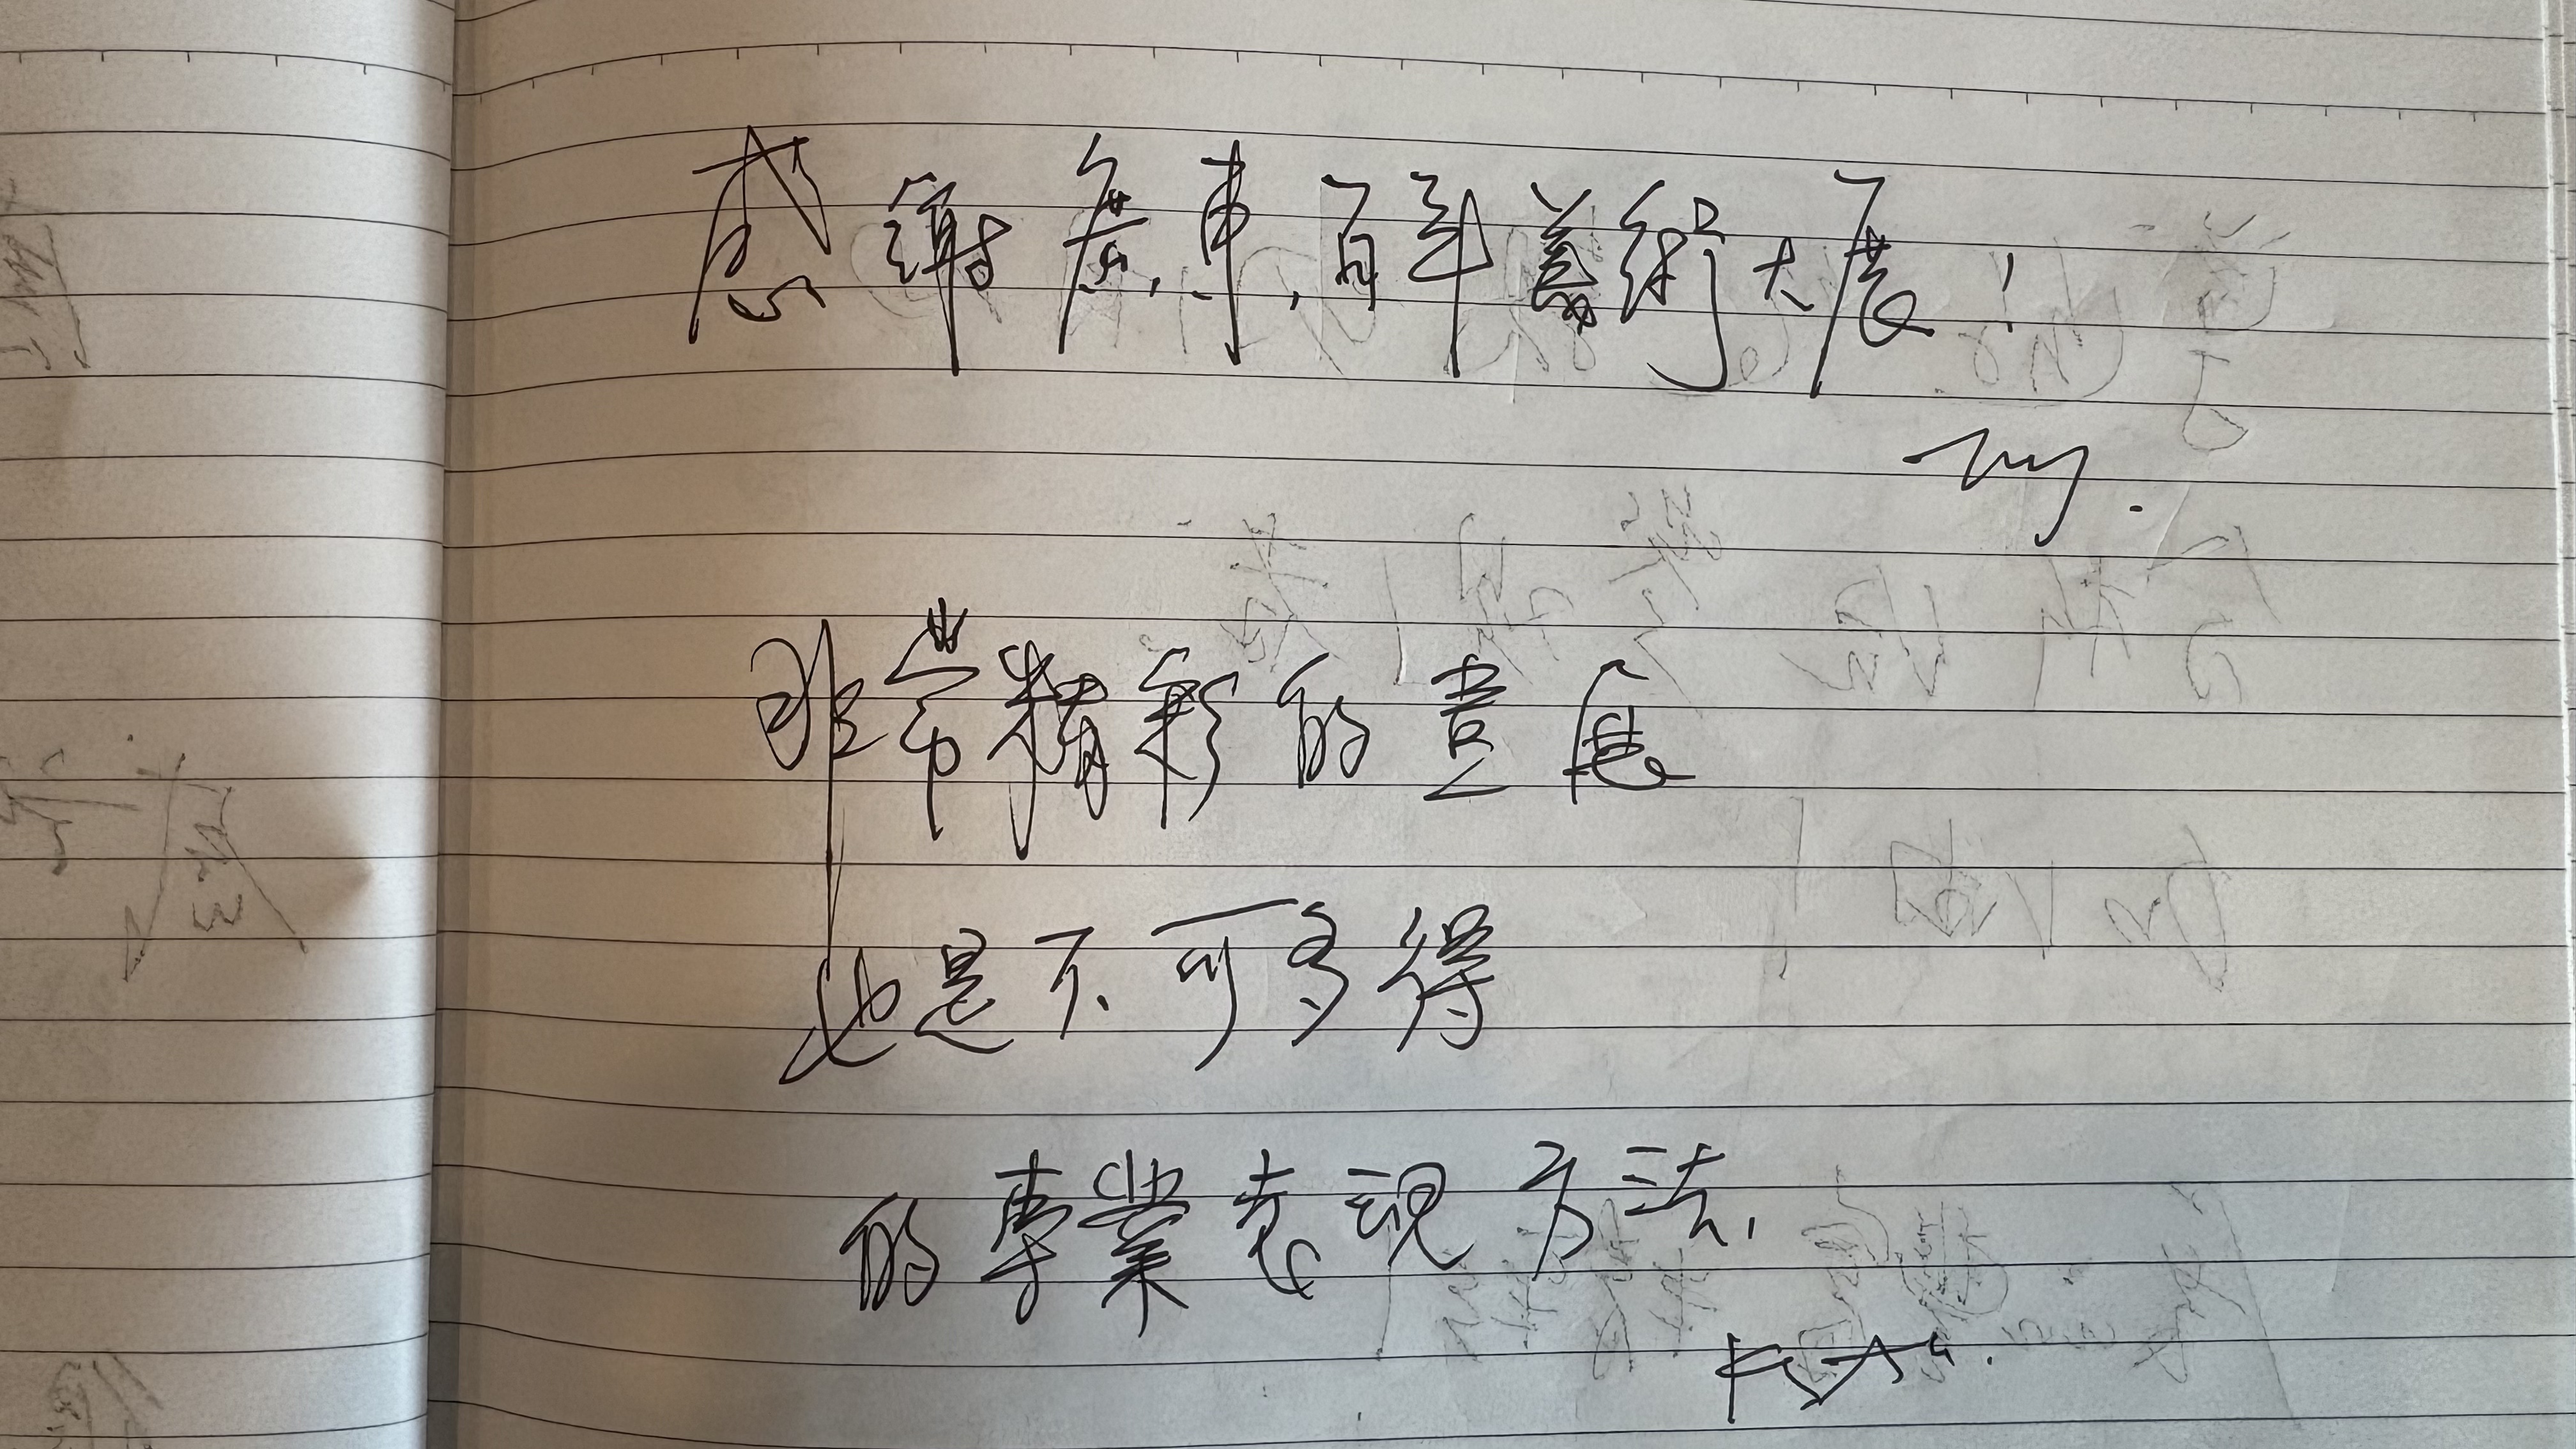 感謝廣東百年藝術大展！
非常精彩的畫展
也是不可多得
的專業表現方法，